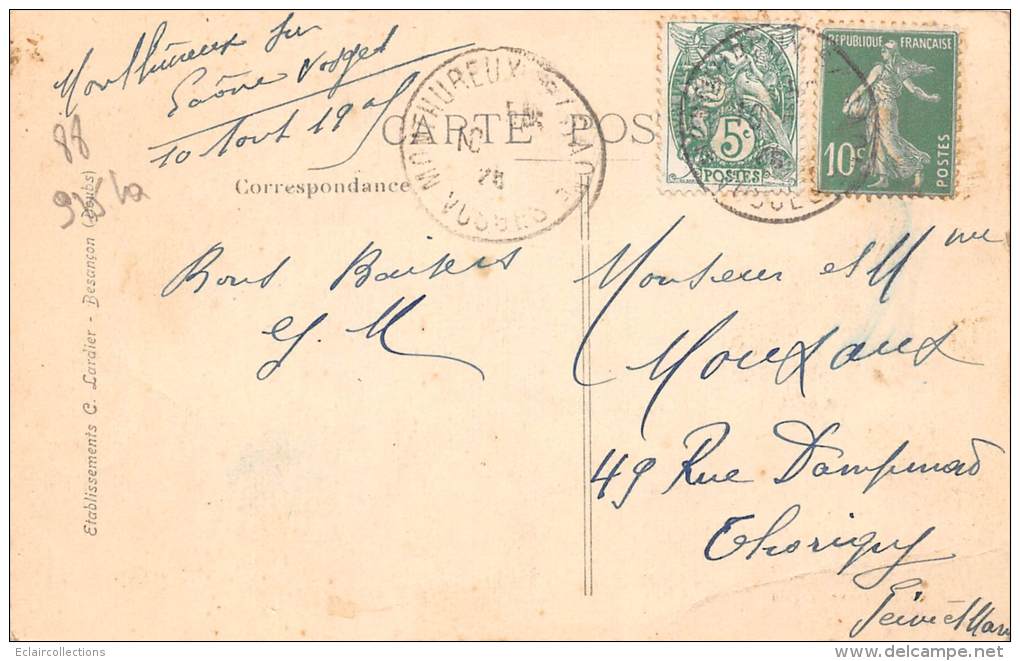 Monthureux sur
Saône Vosges
10 Aout 19
88
CARTE POS
Correspondance
MONTHUREUX
VOSGES
5c
POSTES
REPUBLIQUE FRANÇAISE
10c
POSTES
Bons Baisers
Monsieur et Mme
49 Rue Dampmard
Thorigny
Seine et Mar
Etablissements C. Lardier - Besançon (Doubs)
Eclaircollections